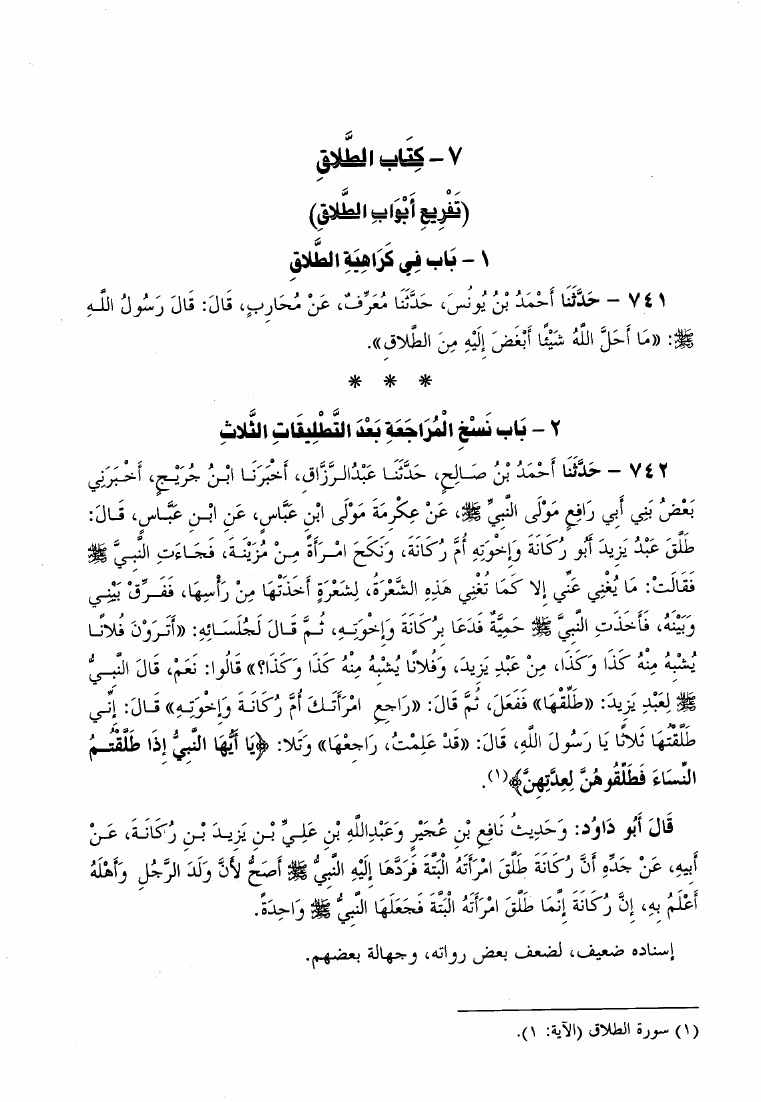 ٧ - كِتَاب الطَّلَاقِ
(تَفْرِيعِ أَبْوَابِ الطَّلاَقِ)
١ - بَاب فِي كَرَاهِيَةِ الطَّلاَقِ
٧٤١ - حَدَّثَنَا أَحْمَدُ بْنُ يُونُسَ، حَدَّثَنَا مُعَرِّفٌ، عَنْ مُحَارِبٍ، قَالَ: قَالَ رَسُولُ اللَّـهِ
ﷺ: «مَا أَحَلَّ اللَّهُ شَيْئًا أَبْغَضَ إِلَيْهِ مِنَ الطَّلاقِ».
* * *
٢ - بَاب نَسْخِ الْمُرَاجَعَةِ بَعْدَ التَّطْلِيقَاتِ الثَّلاثِ
٧٤٢ - حَدَّثَنَا أَحْمَدُ بْنُ صَـالِحٍ، حَدَّثَنَـا عَبْدُالـرَّزَّاقِ، أَخْبَرَنَـا ابْـنُ جُرَيْـجٍ، أَخْـبَرَنِي
بَعْضُ بَنِي أَبِي رَافِعٍ مَوْلَى النَّبِيِّ ﷺ، عَنْ عِكْرِمَةَ مَوْلَى ابْنِ عَبَّاسٍ، عَنِ ابْـنِ عَبَّـاسٍ، قَـالَ:
طَلَّقَ عَبْدُ يَزِيدَ أَبُو رُكَانَةَ وَإِخْوَتِهِ أُمَّ رُكَانَةَ، وَنَكَحَ امْـرَأَةً مِـنْ مُزَيْنَـةَ، فَجَـاءَتِ النَّبِـيَّ ﷺ
فَقَالَتْ: مَا يُغْنِي عَنِّي إِلا كَمَا تُغْنِي هَذِهِ الشَّعْرَةُ، لِشَعْرَةٍ أَخَذَتْهَا مِنْ رَأْسِهَا، فَفَـرِّقْ بَيْنِـي
وَبَيْنَهُ، فَأَخَذَتِ النَّبِيَّ ﷺ حَمِيَّةٌ فَدَعَا بِرُكَانَةَ وَإِخْوَتِـهِ، ثُـمَّ قَـالَ لَجُلَسَـائِهِ: «أَتَـرَوْنَ فُلانًـا
يُشْبِهُ مِنْهُ كَذَا وَكَذَا، مِنْ عَبْدِ يَزِيـدَ، وَفُلانًا يُشْبِهُ مِنْهُ كَذَا وَكَذَا؟» قَالُوا: نَعَمْ، قَالَ النَّبِـيُّ
ﷺ لِعَبْدِ يَزِيدَ: «طَلِّقْهَا» فَفَعَلَ، ثُمَّ قَالَ: «رَاجِعِ امْرَأَتَـكَ أُمَّ رُكَانَـةَ وَإِخْوَتِـهِ» قَـالَ: إِنِّـي
طَلَّقْتُهَا ثَلاثًا يَا رَسُولَ اللَّهِ، قَالَ: «قَدْ عَلِمْتُ، رَاجِعْهَا» وَتَلا: ﴿يَا أَيُّهَا النَّبِيُّ إِذَا طَلَّقْتُـمُ
النِّسَاءَ فَطَلِّقُوهُنَّ لِعِدَّتِهِنَّ﴾(١).
قَالَ أَبُو دَاوُد: وَحَدِيثُ نَافِعِ بْنِ عُجَيْرٍ وَعَبْدِاللَّهِ بْنِ عَلِـيِّ بْـنِ يَزِيـدَ بْـنِ رُكَانَـةَ، عَـنْ
أَبِيهِ، عَنْ جَدِّهِ أَنَّ رُكَانَةَ طَلَّقَ امْرَأَتَهُ الْبَتَّةَ فَرَدَّهَا إِلَيْهِ النَّبِيُّ ﷺ أَصَحُّ لأَنَّ وَلَدَ الرَّجُلِ وَأَهْلَهُ
أَعْلَمُ بِهِ، إِنَّ رُكَانَةَ إِنَّمَا طَلَّقَ امْرَأَتَهُ الْبَتَّةَ فَجَعَلَهَا النَّبِيُّ ﷺ وَاحِدَةً.
إسناده ضعيف، لضعف بعض رواته، وجهالة بعضهم.
(١) سورة الطلاق (الآية: ١).